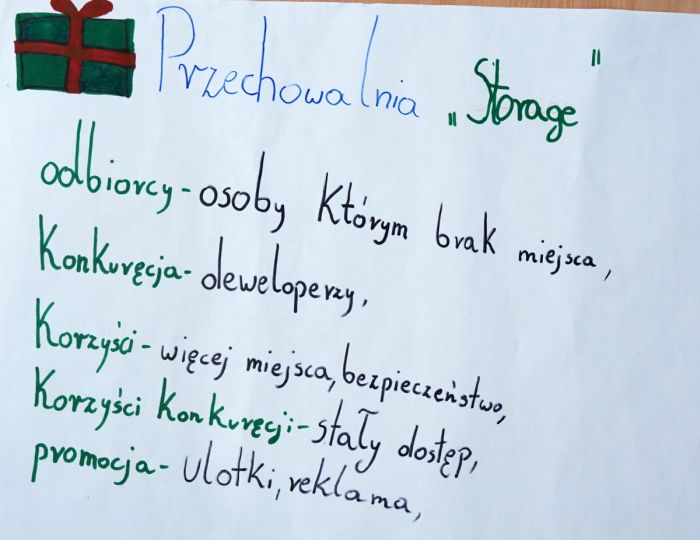 Przechowalnia „Storage"
odbiorcy - osoby którym brak miejsca,
Konkuręcja - deweloperzy,
Korzyści - więcej miejsca, bezpieczeństwo,
Korzyści konkuręcji - stały dostęp,
promocja - ulotki, reklama,